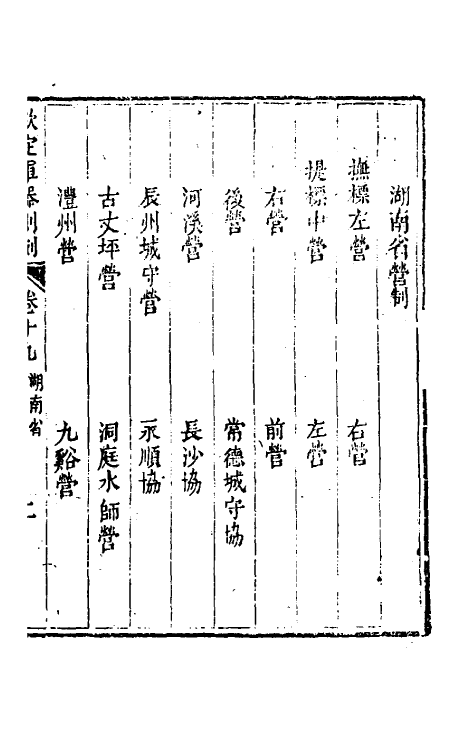 湖南省營制
撫標左營 右營
提標中營 左營
右營 前營
後營 常德城守協
河溪營 長沙協
辰州城守營 永順協
古丈坪營 洞庭水師營
澧州營 九谿營
欽定軍器則例 卷十九 湖南省